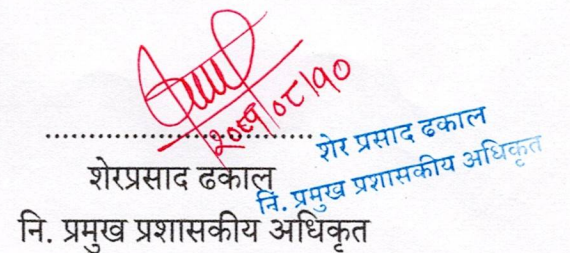 २०८१/०८/१०
शेरप्रसाद ढकाल
नि. प्रमुख प्रशासकीय अधिकृत
शेर प्रसाद ढकाल
नि. प्रमुख प्रशासकीय अधिकृत